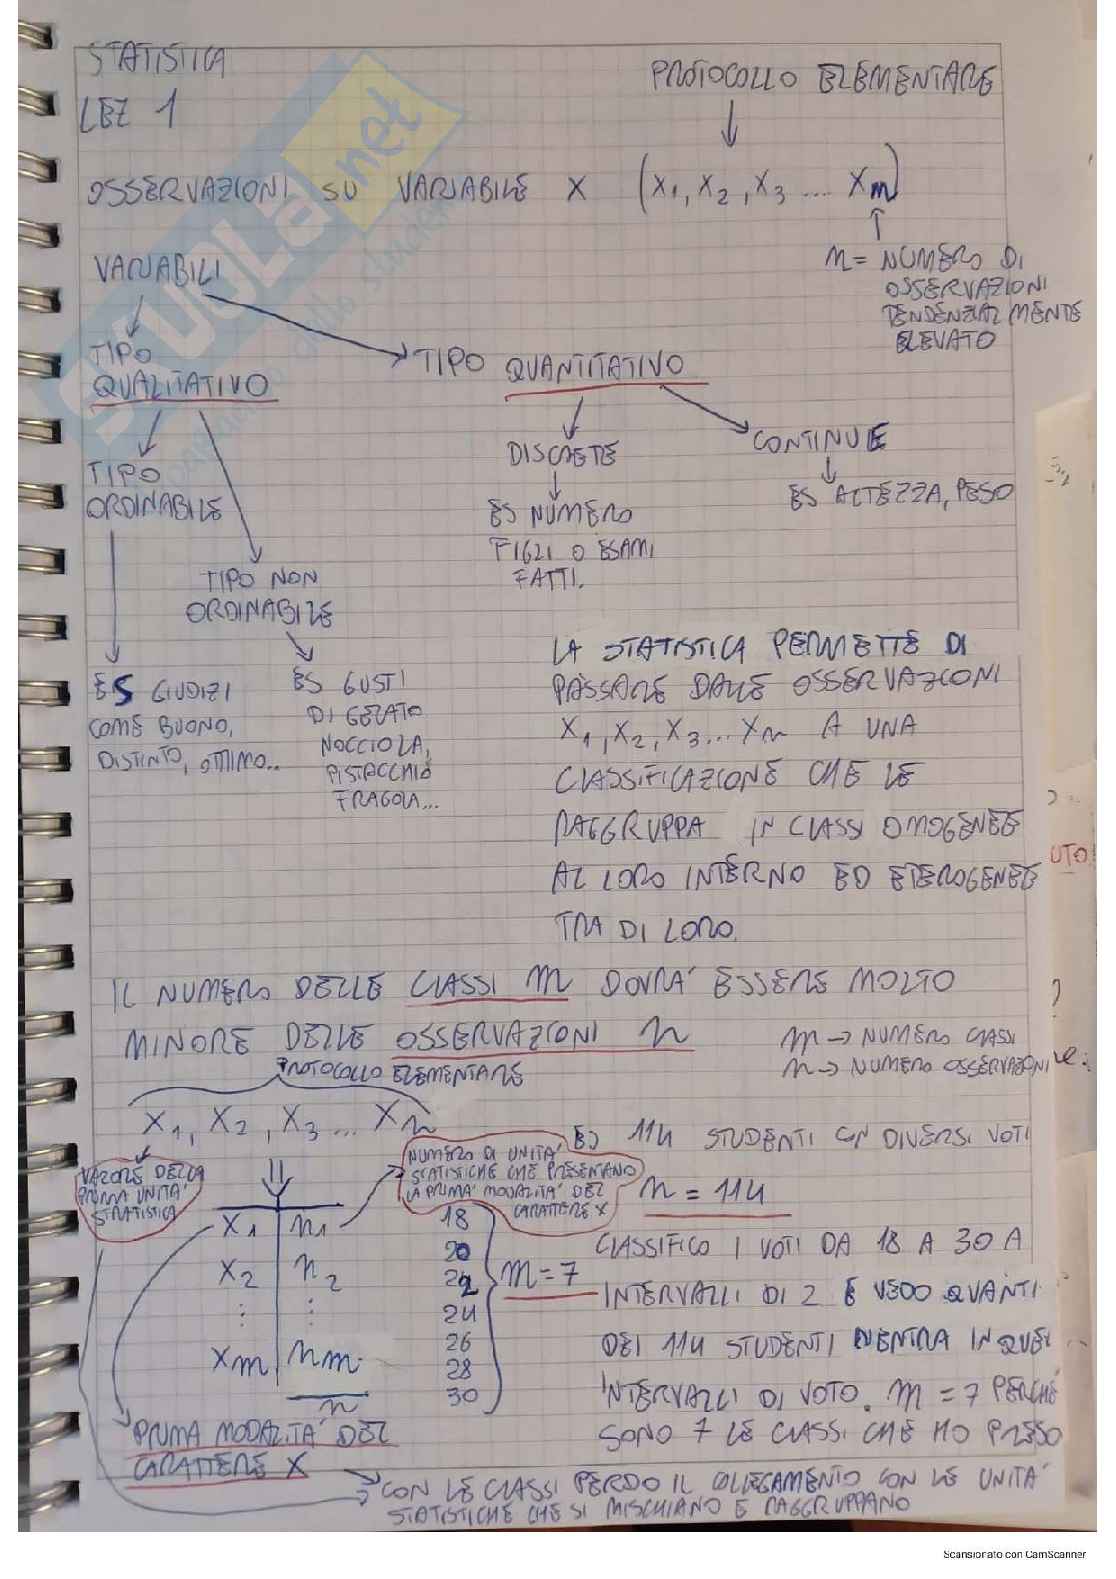 STATISTICA
LEZ 1
PROTOCOLLO ELEMENTARE
OSSERVAZIONI SU VARIABILE X (X1, X2, X3 .... Xn)
n = NUMERO DI
OSSERVAZIONI
TENDENZIALMENTE
ELEVATO
VARIABILI
TIPO
QUALITATIVO
TIPO QUANTITATIVO
DISCRETE
CONTINUE
ES ALTEZZA, PESO
ES NUMERO
FIGLI O ESAMI
FATTI.
TIPO
ORDINABILE
TIPO NON
ORDINABILE
ES GIUDIZI
COME BUONO,
DISTINTO, OTTIMO..
ES GUSTI
DI GELATO
NOCCIOLA,
PISTACCHIO
FRAGOLA...
LA STATISTICA PERMETTE DI
PASSARE DALLE OSSERVAZIONI
X1, X2, X3... Xn A UNA
CLASSIFICAZIONE CHE LE
RAGGRUPPA IN CLASSI OMOGENEE
AL LORO INTERNO ED ETEROGENEE
TRA DI LORO.
IL NUMERO DELLE CLASSI m DOVRA' ESSERE MOLTO
MINORE DELLE OSSERVAZIONI n
m → NUMERO CLASSI
n → NUMERO OSSERVAZIONI
PROTOCOLLO ELEMENTARE
X1, X2, X3 ... Xn
VALORE DELLA
PRIMA UNITA'
STATISTICA
NUMERO DI UNITA'
STATISTICHE CHE PRESENTANO
LA PRIMA MODALITA' DEL
CARATTERE X
X1 n1
X2 n2
⋮ ⋮
Xm nm
n
PRIMA MODALITA' DEL
CARATTERE X
18
20
22
24
26
28
30
m = 7
ES 114 STUDENTI CON DIVERSI VOTI
n = 114
CLASSIFICO I VOTI DA 18 A 30 A
INTERVALLI DI 2 E VEDO QUANTI
DEI 114 STUDENTI RIENTRA IN QUEI
INTERVALLI DI VOTO. m = 7 PERCHÉ
SONO 7 LE CLASSI CHE HO PRESO
CON LE CLASSI PERDO IL COLLEGAMENTO CON LE UNITA'
STATISTICHE CHE SI MISCHIANO E RAGGRUPPANO
UTO.
SKUOLA.net
Scansionato con CamScanner